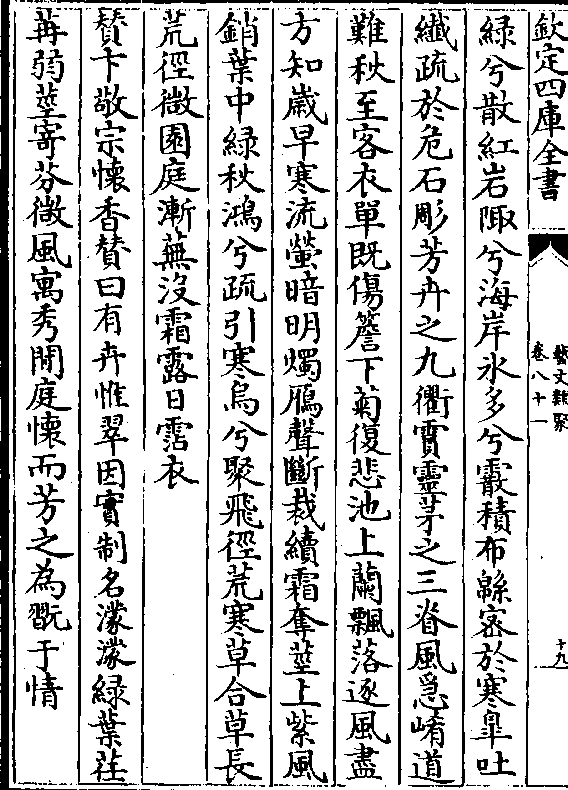 欽定四庫全書
藝文類聚
卷八十一
十九
緑兮散紅岩陬兮海岸氷多兮霰積布緜宻於寒臯吐
纖疏於危石彫芳卉之九衢霣靈茅之三脊風急崤道
難秋至客衣單既傷簷下菊復悲池上蘭飄落逐風盡
方知嵗早寒流螢暗明燭鴈聲斷裁續霜奪莖上紫風
銷葉中緑秋鴻兮疏引寒烏兮聚飛徑荒寒草合草長
荒徑微園庭漸蕪没霜露日霑衣
賛卞敬宗懷香賛曰有卉惟翠因實制名濛濛緑葉茌
苒弱莖寄芬微風寓秀閒庭懷而芳之為翫于情